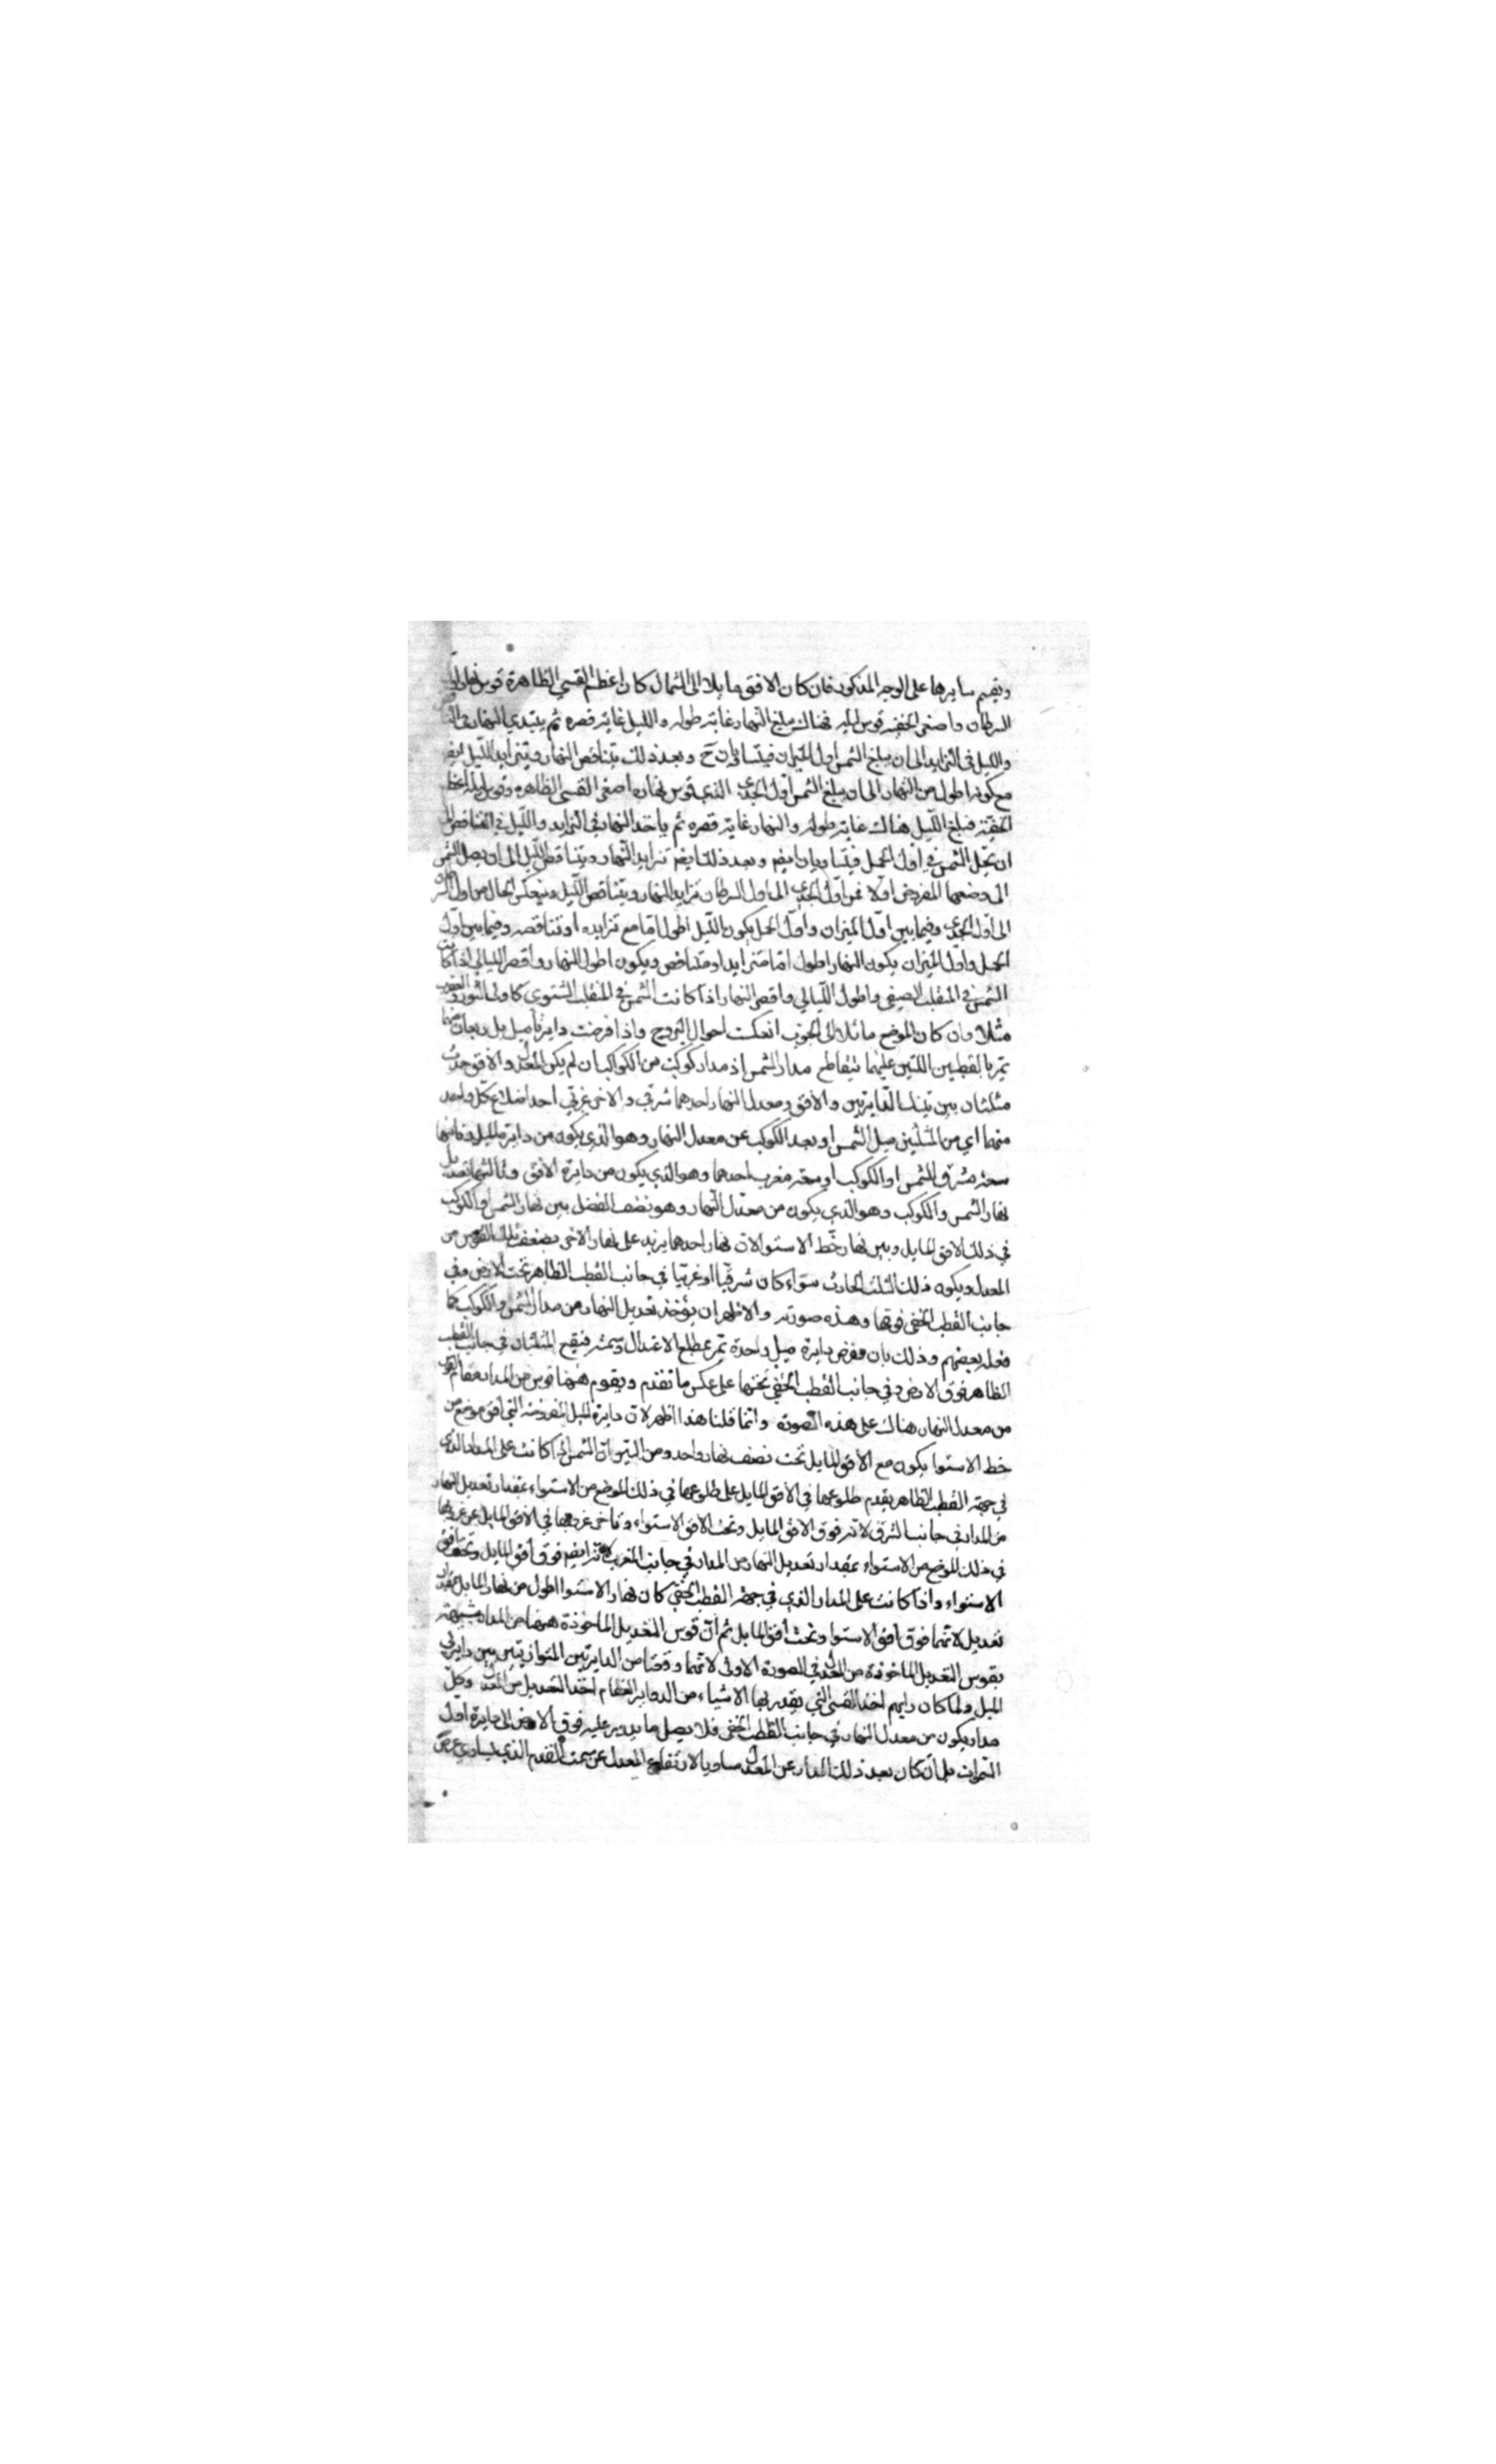 ويقيم سايرها على الوجه المذكور فان كان الافق مايلا الى الشمال كان اعظم القسي الظاهرة قوس نهار اول
السرطان واصغر الخفية قوس ليله فهناك مبلغ النهار غاية طوله والليل غاية قصره ثم يبتدي النهار في التناقص
والليل في التزايد الى ان يبلغ الشمس اول الميزان فيتساويان ح وبعد ذلك يتناقص النهار ويتزايد الليل ايضا
مع كونه اطول من النهار الى ان يبلغ الشمس اول الجدى الذي قوس نهاره اصغر القسي الظاهره وقوس ليله اعظم
الخفية فبلغ الليل هناك غاية طوله والنهار غاية قصره ثم ياخذ النهار في التزايد والليل في التناقص الى
ان تحل الشمس في اول الحمل فيتساويان ايضم وبعد ذلك ايضم تزايد النهار ويتناقص الليل الى ان يصل الشمس
الى وضعها المفروض اولا فمن اول الجدى الى اول السرطان تزايد النهار ويتناقص الليل وينعكس الحال من اول السرطان
الى اول الجدى وفيما بين اول الميزان واول الحمل يكون الليل اطول اما مع تزايده او تناقصه وفيما بين اول
الحمل واول الميزان يكون النهار اطول اما متزايدا او متناقص ويكون اطول النهار واقصر الليالي اذا كانت
الشمس في المنقلب الصيفي واطول الليالي واقصر النهار اذا كانت الشمس في المنقلب الشتوى كاولى الثور والعقرب
مثلا وان كان الموضع مائلا الى الجنوب انعكست احوال البروج واذا فرضت دايرتا ميل بل ربعان منهما
تمر بالقطبين اللتين عليهما يتقاطع مدار الشمس اذ مدار كوكب من الكواكب ان لم يكن المعدل والافق حدث
مثلثان بين تينك الدايرتين والافق ومعدل النهار احدهما شرقي والاخر غربي احد اضلاع كل واحد
منهما اي من المثلثين ميل الشمس او بعد الكوكب عن معدل النهار وهو الذي يكون من دايرة الميل وثانيها
سعة مشرق الشمس او الكوكب او سعة مغرب احدهما وهو الذي يكون من دايرة الافق وثالثها تعديل
نهار الشمس والكوكب وهو الذي يكون من معدل النهار وهو نصف الفضل بين نهار الشمس او الكوكب
في ذلك الافق المايل وبين نهار خط الاستوا لان نهار احدهما يزيد على نهار الاخر بضعف تلك القوس من
المعدل ويكون ذلك المثلث الحادث سواء كان شرقيا او غربيا في جانب القطب الظاهر تحت الارض وفي
جانب القطب الخفي فوقها وهذه صورته والاظهر ان يؤخذ تعديل النهار من مدار الشمس والكوكب كما
فعله بعضهم وذلك بان نفرض دايرة ميل واحدة تمر بمطلع الاعتدال وسمته فيقع المثلثان في جانب القطب
الظاهر فوق الارض وفي جانب القطب الخفي تحتها على عكس ما تقدم ويقوم ههنا قوس من المدار مقام القوس
من معدل النهار هناك على هذه الصورة وانما قلنا هذا اظهر لان دايرة الميل المفروضة التي افق موضع من
خط الاستوا يكون مع الافق المايل تحت نصف نهار واحد ومن البين ان الشمس اذا كانت على المدار الذي
في جهة القطب الظاهر يقدم طلوعها في الافق المايل على طلوعها في ذلك الموضع من الاستواء بمقدار تعديل النهار
من المدار في جانب الشرق لانه فوق الافق المايل وتحت الافق الاستواء وتاخر غروبها في الافق المايل عن غروبها
في ذلك الموضع من الاستواء بمقدار تعديل النهار من المدار في جانب المغرب لانه ايضم فوق افق المايل وتحت افق
الاستواء واذا كانت على المدار الذي في جهة القطب الخفي كان نهار الاستوا اطول من نهار المايل بمقدار
تعديل لانهما فوق افق الاستوا وتحت افق المايل ثم ان قوس التعديل الماخوذة ههنا من المدار شبيهة
بقوس التعديل الماخوذة من المعدل في الصورة الاولى لانهما وقعتا من الدايرتين المتوازيتين بين دايرتي
الميل ولما كان دايهم اخذ القسي التي يقدر بها الاشياء من الدواير العظام اخذ التعديل من المعدل وكل
مدار يكون من معدل النهار في جانب القطب الخفي فلا يصل ما يدور عليه فوق الارض الى دايرة اول
السموات لما كان بعد ذلك المدار عن المعدل مساويا لارتفاع المعدل عن سمت القدم الذي يساوي عرض